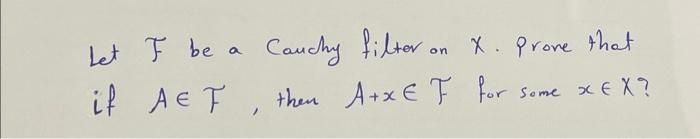 Let F be a Cauchy filter on X. Prove that
if A ∈ F, then A+x ∈ F for some x ∈ X?